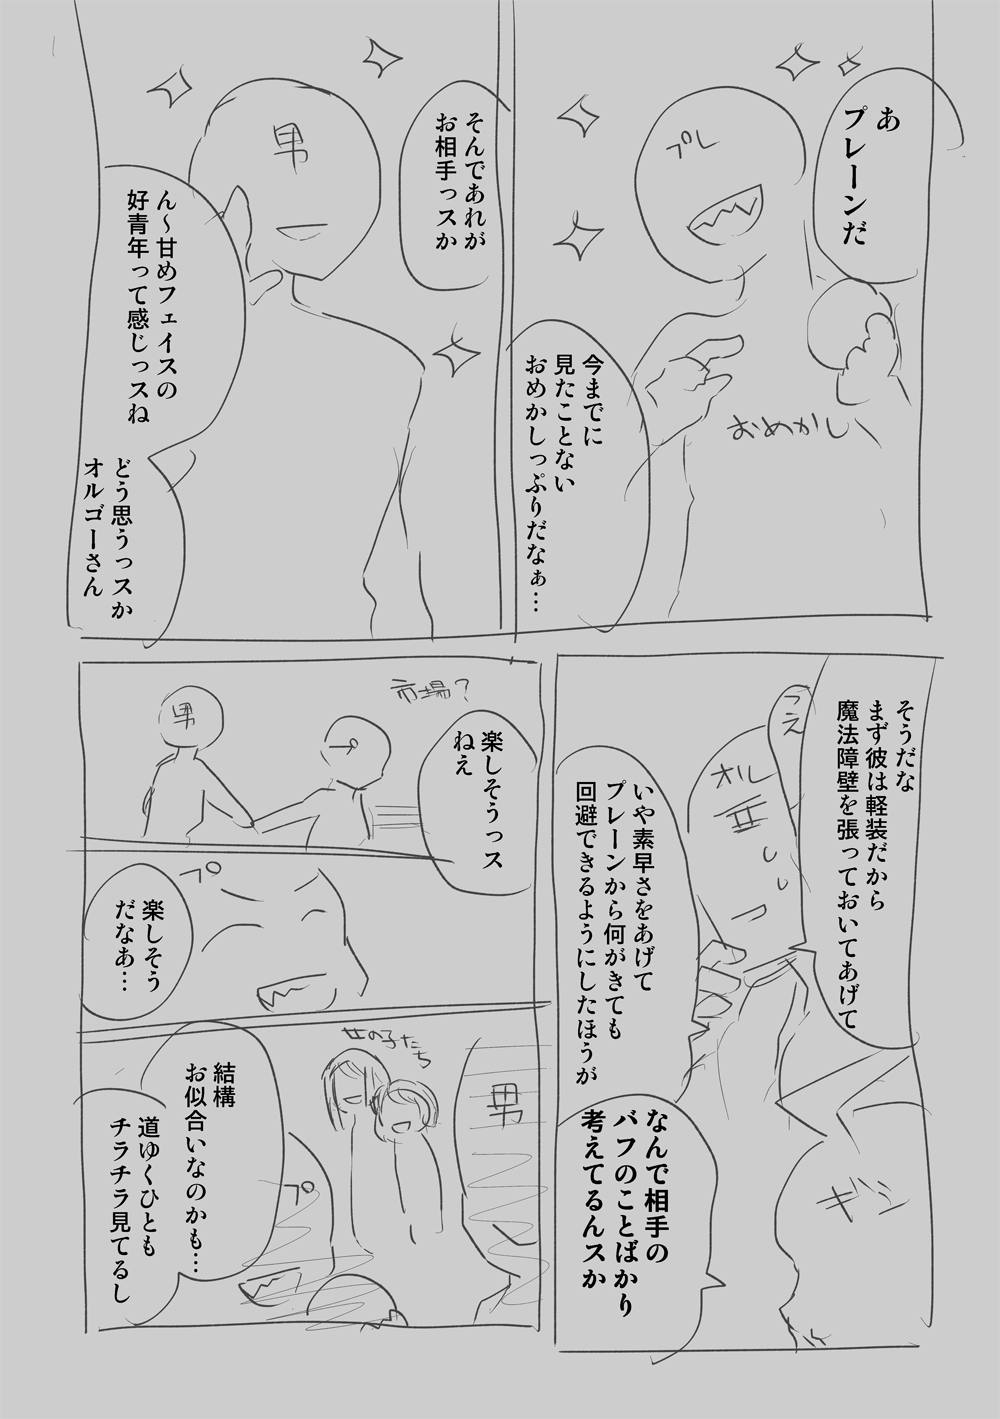 あ
プレーンだ
プレ
おめかし
今までに
見たことない
おめかしっぷりだなぁ…
そんであれが
お相手っスか
男
ん～甘めフェイスの
好青年って感じっスね
どう思うっスか
オルゴーさん
そうだな
まず彼は軽装だから
魔法障壁を張っておいてあげて
つえ
オル
いや素早さをあげて
プレーンから何がきても
回避できるようにしたほうが
なんで相手の
バフのことばかり
考えてるんスか
ギン
市場?
楽しそうっス
ねえ
プ
男
プ
楽しそう
だなあ…
女の子たち
男
結構
お似合いなのかも…
道ゆくひとも
チラチラ見てるし
プ